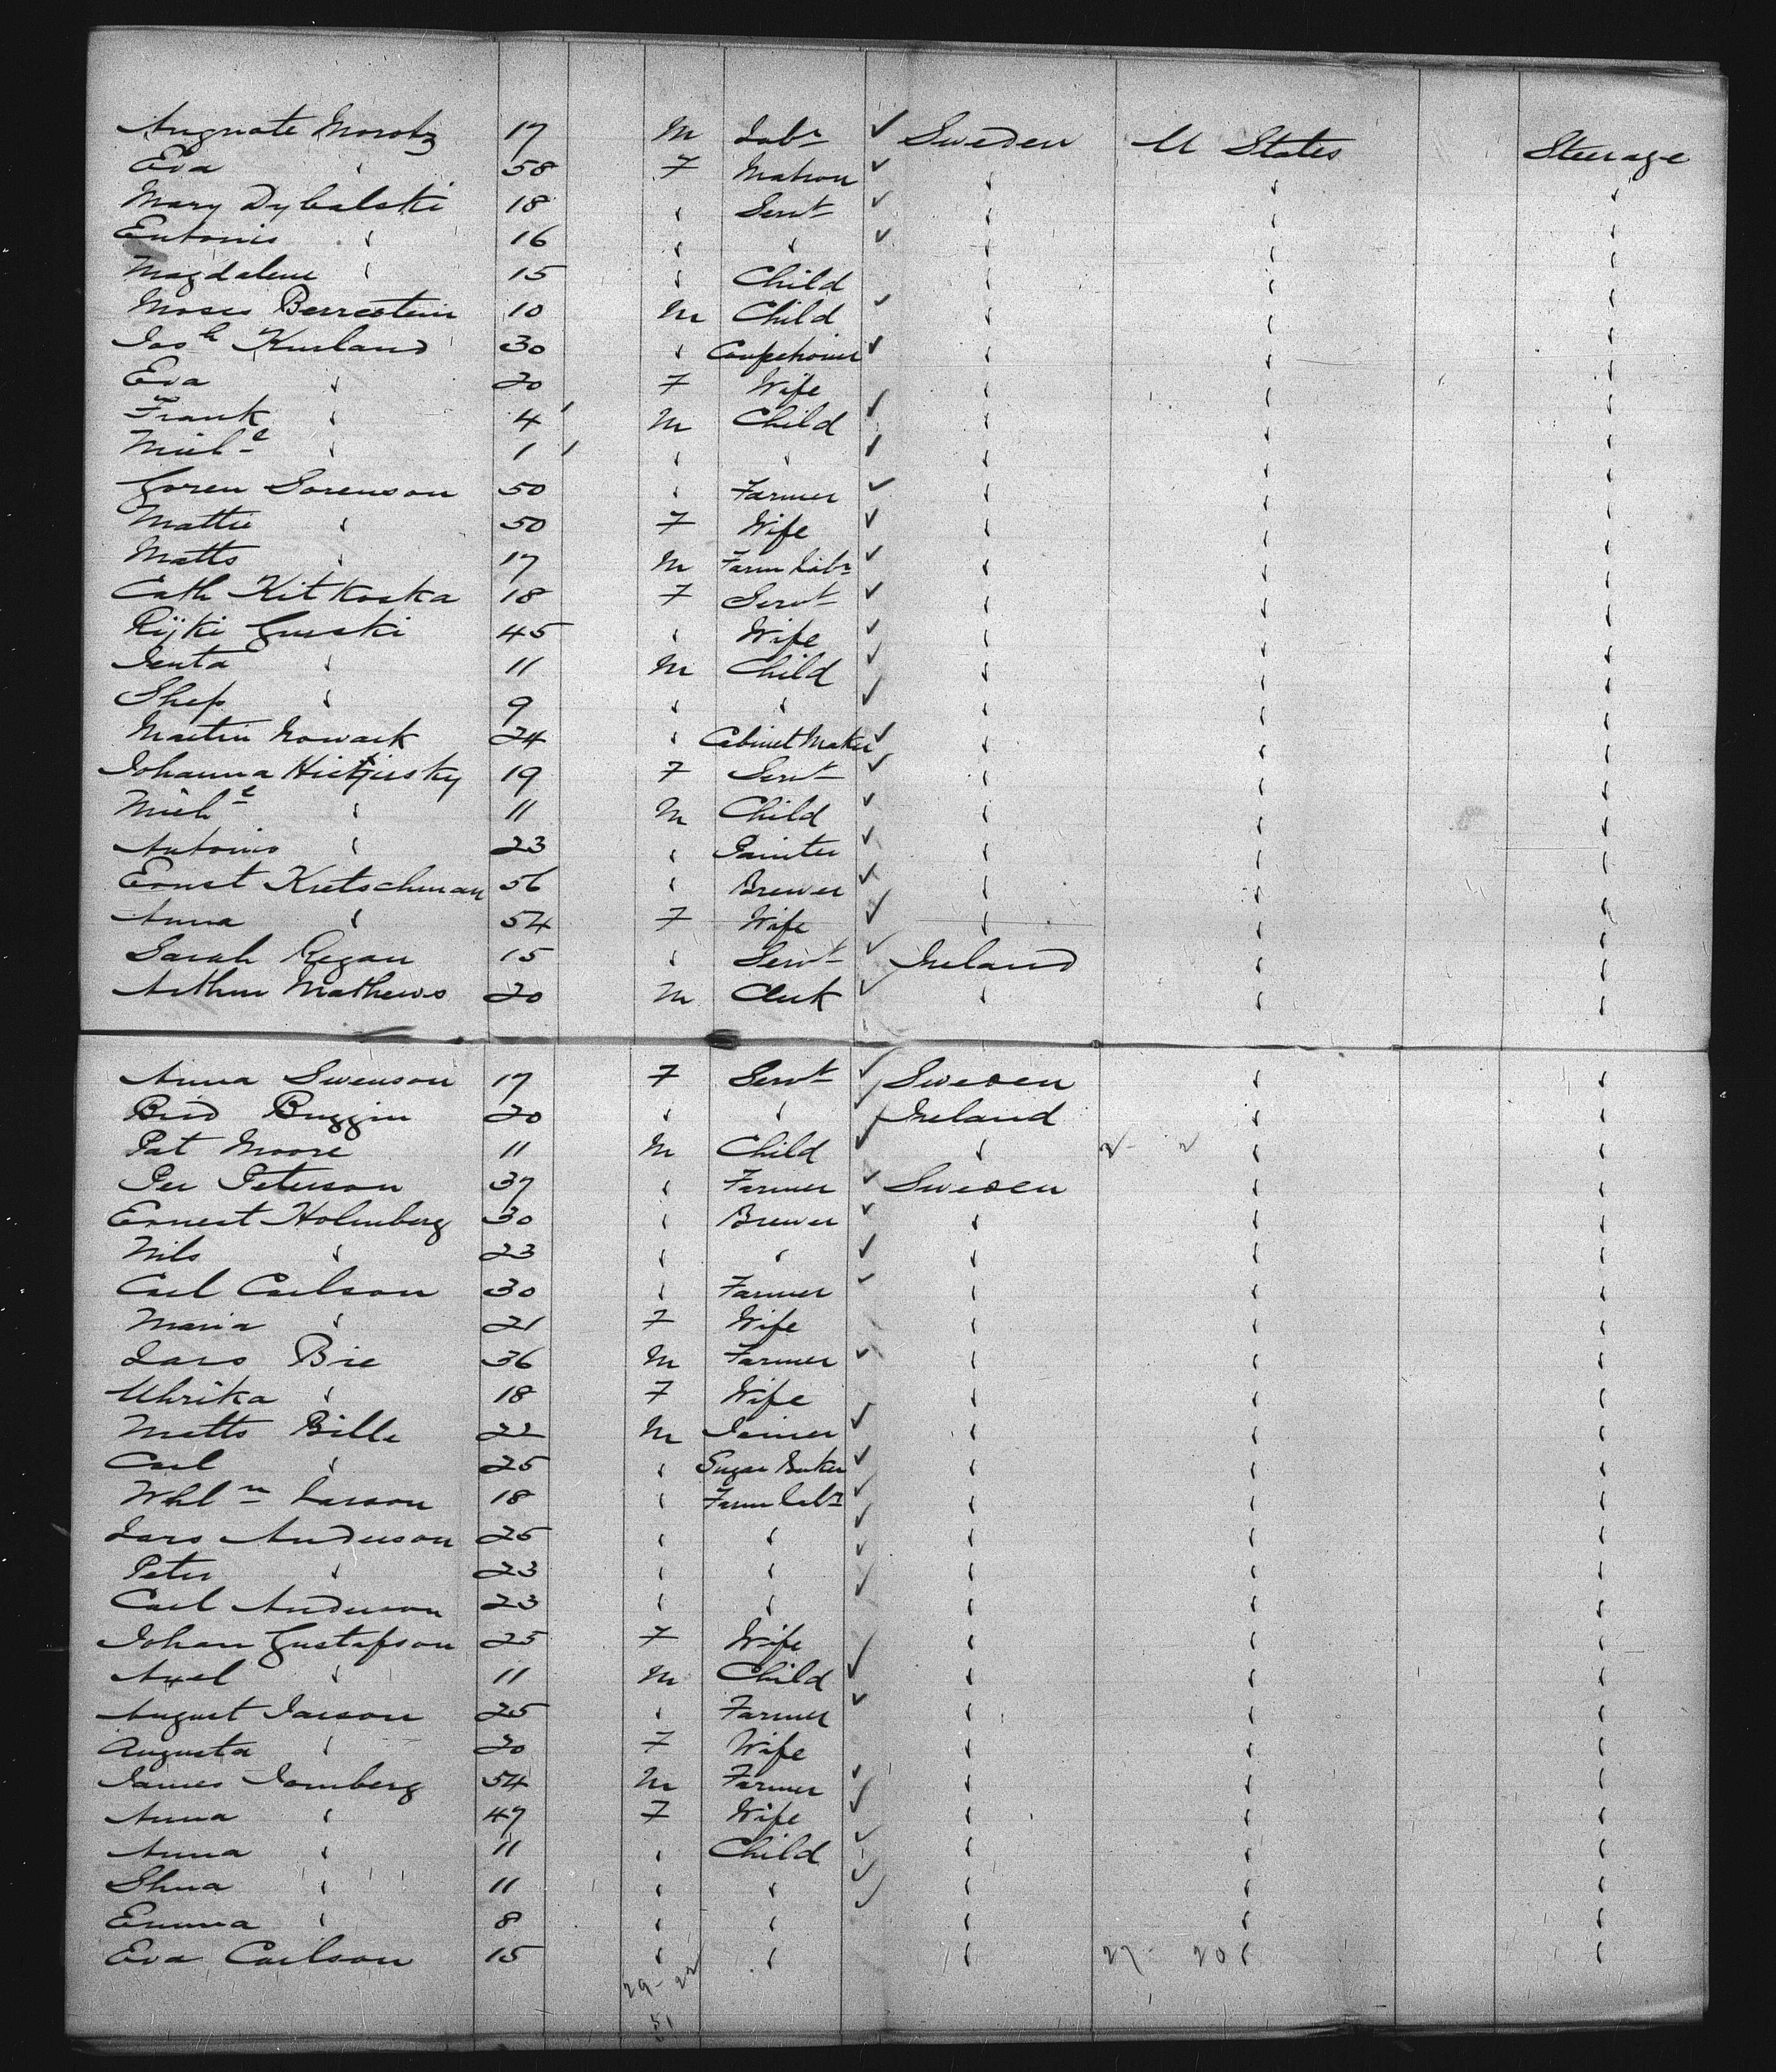 Auguste Morotz 17 M Labr ✓ Sweden U States Steerage
Eva " 58 F Matron ✓ " " "
Mary Dybalski 18 " Servt ✓ " " "
Entonis " 16 " " ✓ " " "
Magdalene " 15 " Child " " "
Moses Berrestein 10 M Child ✓ " " "
Josh Kurland 30 " ✓ " " "
Eva " 20 F Wife " " "
Frank " 4 M Child ✓ " " "
Michl " 1 " " ✓ " " "
Soren Sorenson 50 " Farmer ✓ " " "
Mattie " 50 F Wife ✓ " " "
Matts " 17 M Farm Labr ✓ " " "
Cath Kitkoska 18 F Servt ✓ " " "
Rijki Gurski 45 " Wife ✓ " " "
Jenta " 11 M Child ✓ " " "
Shep " 9 " " ✓ " " "
Martin Nowack 24 " Cabinet Maker ✓ " " "
Johanna 19 F Servt ✓ " " "
Michl " 11 M Child ✓ " " "
Antonis " 23 " Painter ✓ " " "
Ernst Kretschman 56 " Brewer ✓ " " "
Anna " 54 F Wife ✓ " " "
Sarah Regan 15 " Servt ✓ Ireland " "
Arthur Mathews 20 M Clerk ✓ " " "
Anna Swenson 17 F Servt ✓ Sweden " "
Brid Buggin 20 " " ✓ Ireland " "
Pat Moore 11 M Child ✓ " 2 - 2 " "
Per Peterson 37 " Farmer ✓ Sweden " "
Ernest Holmberg 30 " Brewer ✓ " " "
Nils " 23 " " ✓ " " "
Carl Carlson 30 " Farmer ✓ " " "
Maria " 21 F Wife " " "
Lars Bie 36 M Farmer ✓ " " "
Ulrika " 18 F Wife " " "
Matts Bille 22 M Joiner ✓ " " "
Carl " 25 " Sugar Baker ✓ " " "
Whlm Larson 18 " Farm Labr ✓ " " "
Lars Anderson 25 " " ✓ " " "
Peter " 23 " " ✓ " " "
Carl Anderson 23 " " ✓ " " "
Johan Gustafson 25 F Wife " " "
Axel " 11 M Child ✓ " " "
August Larson 25 " Farmer ✓ " " "
Augusta " 20 F Wife " " "
James Jomberg 54 M Farmer ✓ " " "
Anna " 47 F Wife ✓ " " "
Anna " 11 " Child ✓ " " "
Shua " 11 " " ✓ " " "
Emma " 8 " " ✓ " " "
Eva Carlson 15 " " " 27 - 20 " "
29 - 22
51